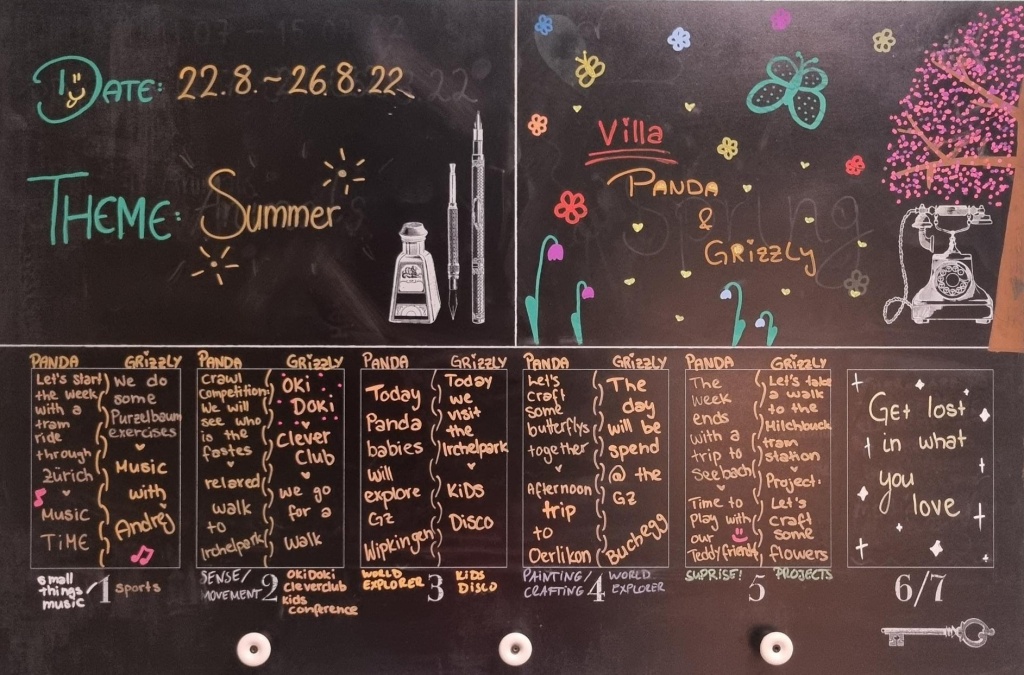 DATE: 22.8.~26.8.22
THEME: Summer
Villa
PANDA
&
GRIZZLY
PANDA
Let's start
the week
with a
tram
ride
through
Zürich
MUSIC
TIME
small
things
music
GRIZZLY
we do
some
Purzelbaum
exercises
Music
with
Andrej
sports
1
PANDA
crawl
Competition!
We will
see who
is the
fastes
relaxed
walk
to
Irchelpark
SENSE/
MOVEMENT
GRIZZLY
OKi
DOKi
Clever
Club
we go
for a
Walk
OKiDOKi
cleverclub
kids
conference
2
PANDA
Today
Panda
babies
will
explore
GZ
Wipkingen
WORLD
EXPLORER
GRIZZLY
Today
we
visit
the
Irchelpark
KiDS
DISCO
KiDS
DISCO
3
PANDA
Let's
craft
some
butterflys
together
Afternoon
trip
to
Oerlikon
PAINTING/
CRAFTING
GRIZZLY
The
day
will be
spend
@ the
GZ
Buchegg
WORLD
EXPLORER
4
PANDA
The
week
ends
with a
trip to
Seebach
Time to
Play with
our
Teddyfriends
SUPRISE!
GRIZZLY
Let's take
a walk
to the
Milchbuck
tram
station
Project:
Let's
craft
some
flowers
PROJECTS
5
Get lost
in what
you
love
6/7